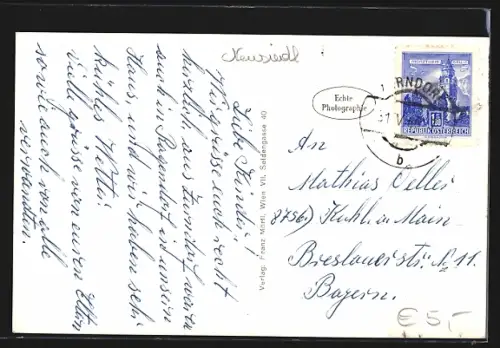 Neusiedl
Liebe Kinder!
Wir grüsse euch recht
herzlich aus Zurndorf waren
auch in Pasendorf in unsern
Haus, und wir haben sehr
kühles Wetter.
Viele grüsse von euren Eltern
sowie auch von alle
verwandten.
Verlag Franz Mörtl, Wien VII, Seidengasse 40
Echte
Photographie
REPUBLIK ÖSTERREICH
RNDORF
b
An
Mathias Oeller
8756) Kahl a Main
Breslauerstr. No 11.
Bayern.
€ 5,-